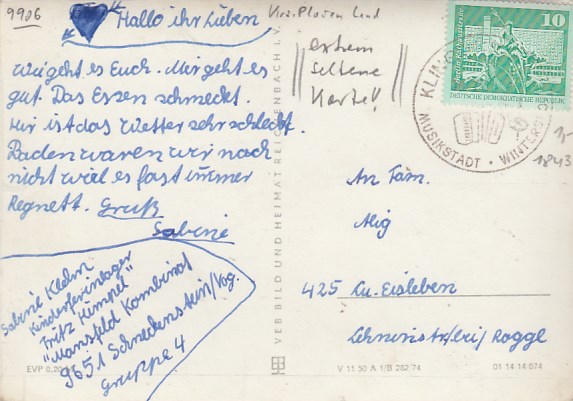 9906
Hallo ihr Lieben
Wie geht es Euch. Mir geht es
gut. Das Essen schmeckt.
Hir ist das Wetter sehr schlecht.
Baden waren wir noch
nicht weil es fast immer
Regnett. Gruß
Sabine
Sabine Klehm
Kinderferienlager
"Fritz Kumpel"
"Mansfeld Kombinat
9651 Schneckenstein/Vog.
Gruppe 4
EVP 0,20
VEB BILD UND HEIMAT REICHENBACH I. V.
extrem
seltene
Karte!!
10
DEUTSCHE DEMOKRATISCHE REPUBLIK
MUSIKSTADT · WINTER
1843
An Fam.
Alig
425 Lu.-Eisleben
V 11 50 A 1/B 282/74
01 14 14 074